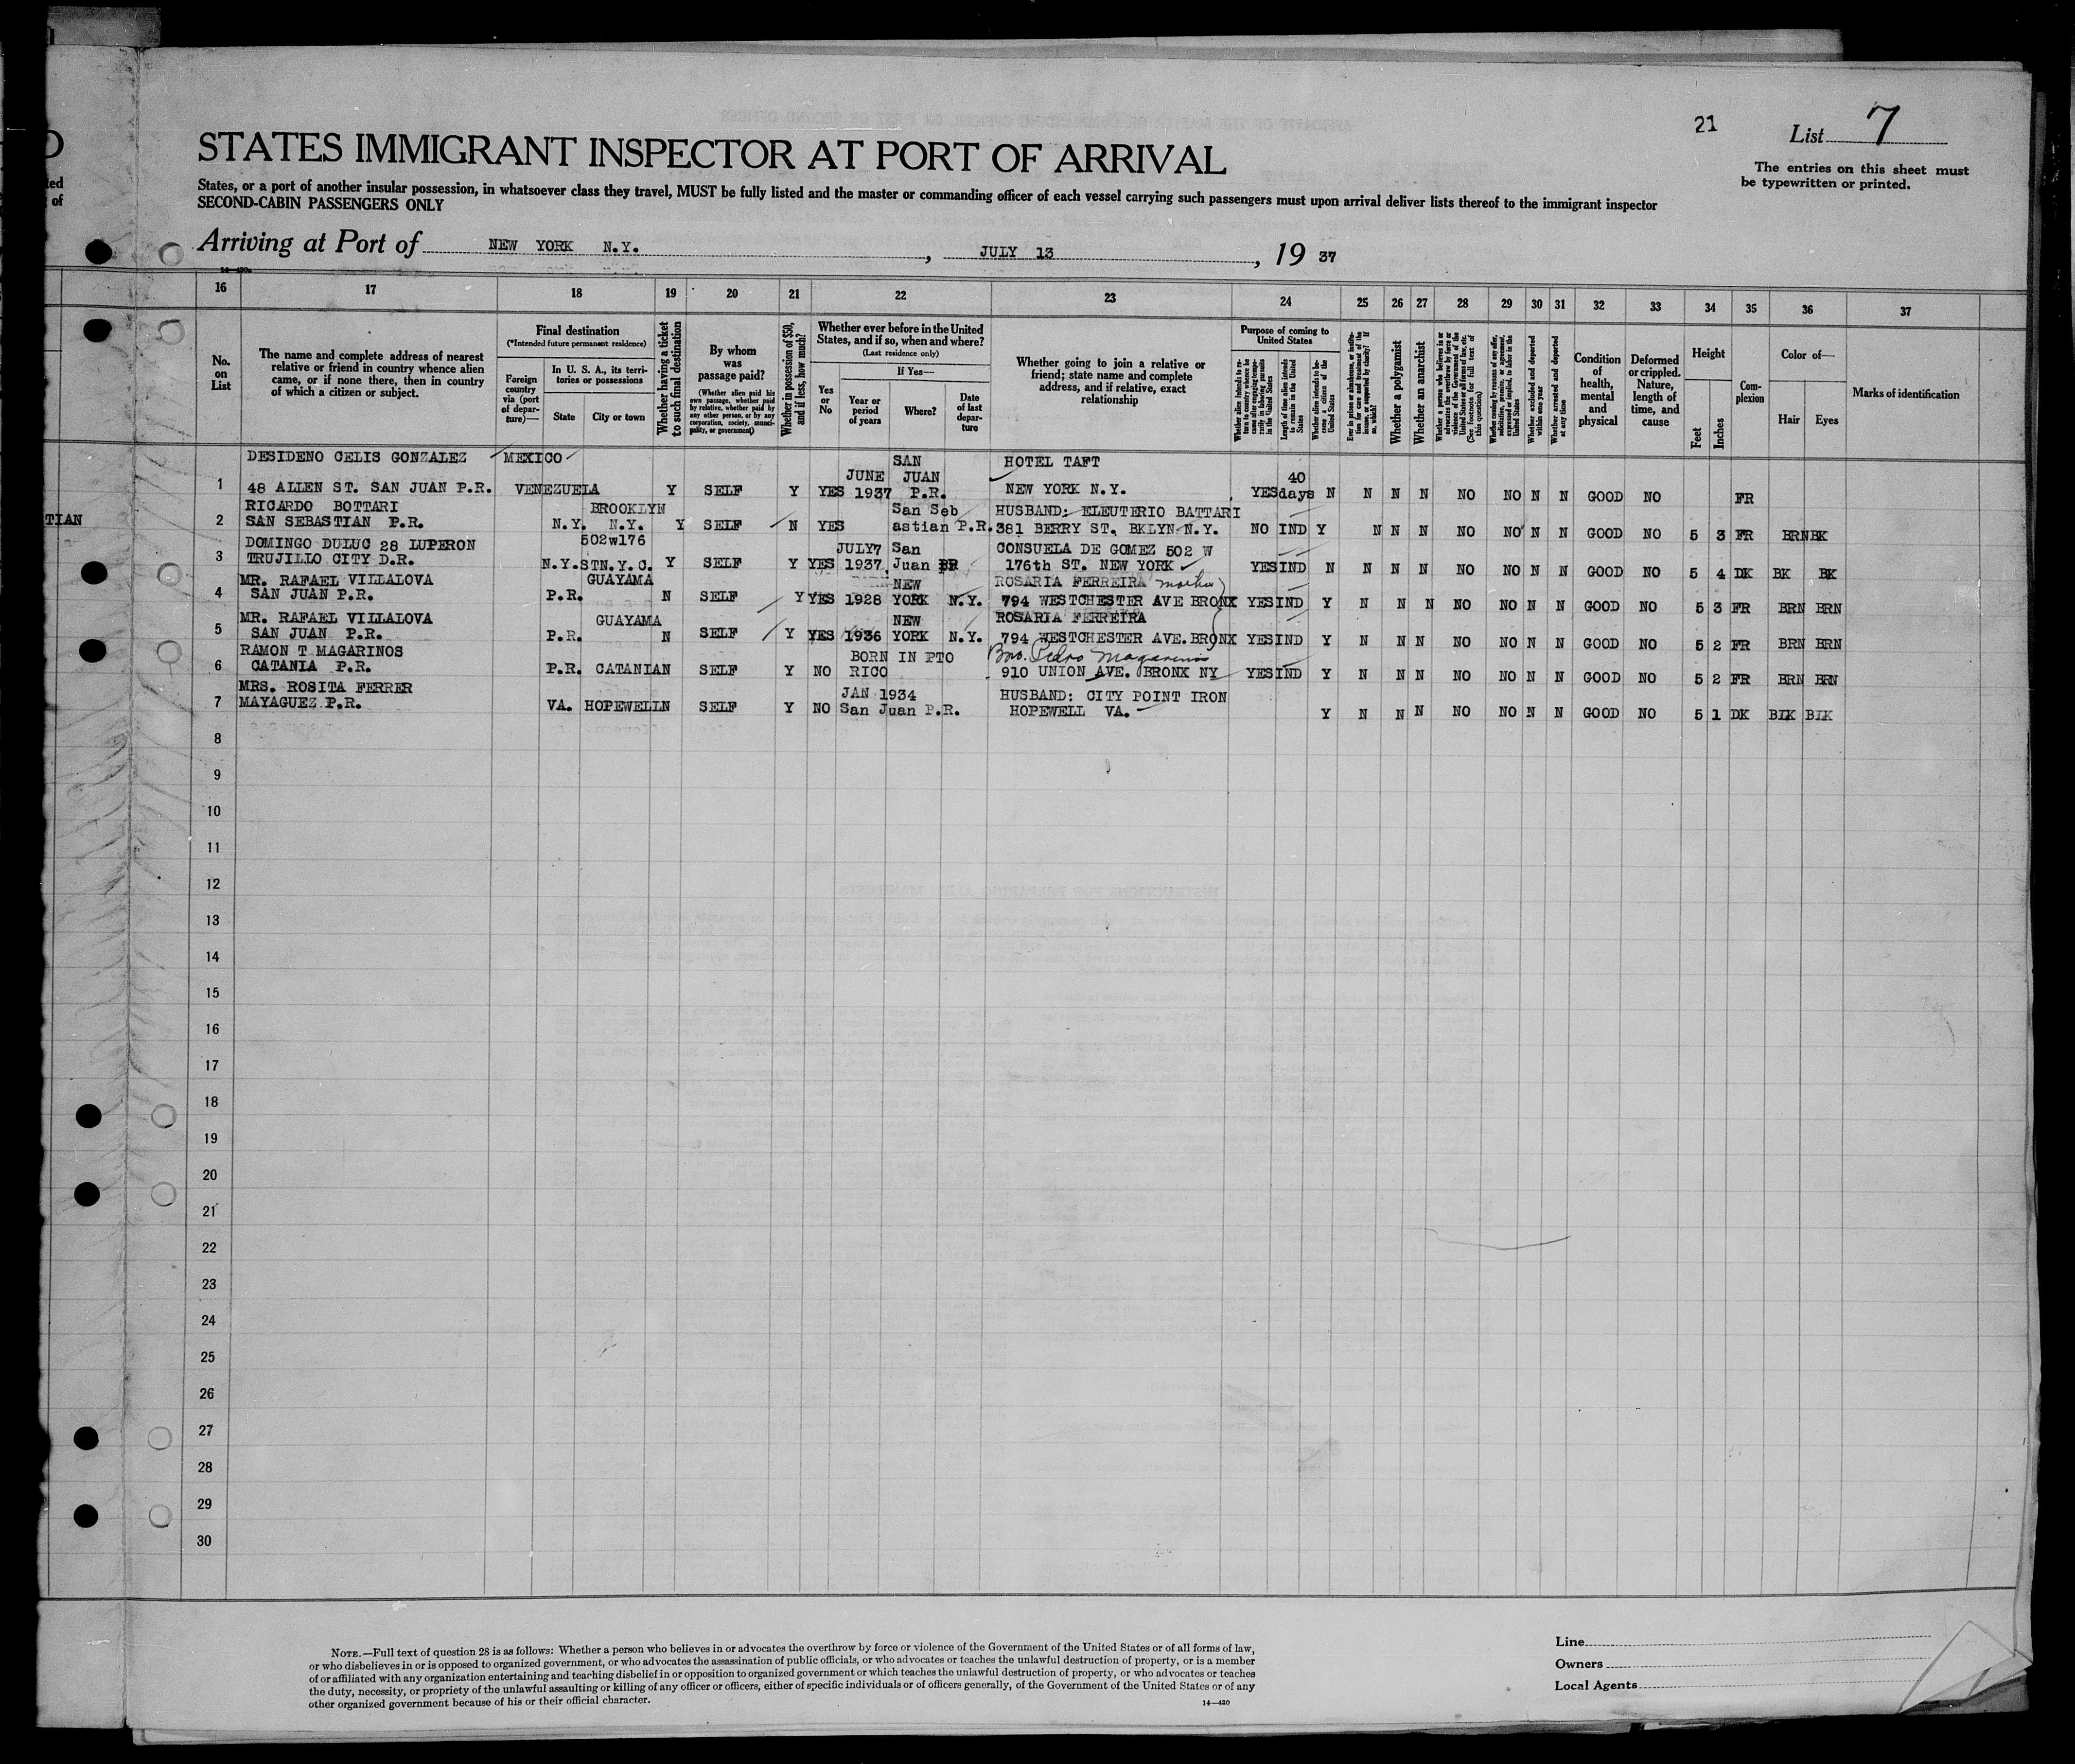 21
List 7
STATES IMMIGRANT INSPECTOR AT PORT OF ARRIVAL
The entries on this sheet must
be typewritten or printed.
ted
of
States, or a port of another insular possession, in whatsoever class they travel, MUST be fully listed and the master or commanding officer of each vessel carrying such passengers must upon arrival deliver lists thereof to the immigrant inspector
SECOND-CABIN PASSENGERS ONLY
Arriving at Port of NEW YORK N.Y. , JULY 13 , 19 37
16 17 18 19 20 21 22 23 24 25 26 27 28 29 30 31 32 33 34 35 36 37
No. on List
The name and complete address of nearest relative or friend in country whence alien came, or if none there, then in country of which a citizen or subject.
Final destination
(*Intended future permanent residence)
Foreign country via (port of departure)—
In U. S. A., its territories or possessions
State
City or town
Whether having a ticket to such final destination
By whom was passage paid?
(Whether alien paid his own passage, whether paid by relative, whether paid by any other person, or by any corporation, society, municipality, or government)
Whether in possession of $50, and if less, how much?
Whether ever before in the United States, and if so, when and where?
(Last residence only)
Yes or No
If Yes—
Year or period of years
Where?
Date of last departure
Whether going to join a relative or friend; state name and complete address, and if relative, exact relationship
Purpose of coming to United States
Whether alien intends to return to country whence he came after engaging temporarily in laboring pursuits in the United States
Length of time alien intends to remain in the United States
Whether alien intends to become a citizen of the United States
Ever in prison or almshouse, or institution for care and treatment of the insane, or supported by charity? If so, which?
Whether a polygamist
Whether an anarchist
Whether a person who believes in or advocates the overthrow by force or violence of the Government of the United States or all forms of law, etc. (See footnote for full text of this question)
Whether coming by reason of any offer, solicitation, promise, or agreement, expressed or implied, to labor in the United States
Whether excluded and deported within one year
Whether arrested and deported at any time
Condition of health, mental and physical
Deformed or crippled. Nature, length of time, and cause
Height
Feet
Inches
Complexion
Color of—
Hair
Eyes
Marks of identification
DESIDENO CELIS GONZALEZ MEXICO SAN HOTEL TAFT
JUNE JUAN 40
1 48 ALLEN ST. SAN JUAN P.R. VENEZUELA Y SELF Y YES 1937 P.R. NEW YORK N.Y. YES days N N N N NO NO N N GOOD NO FR
RICARDO BOTTARI BROOKLYN San Seb HUSBAND: ELEUTERIO BATTARI
TIAN 2 SAN SEBASTIAN P.R. N.Y. N.Y. Y SELF N YES astian P.R. 381 BERRY ST. BKLYN N.Y. NO IND Y N N N NO NO N N GOOD NO 5 3 FR BRN BK
DOMINGO DULUC 28 LUPERON 502w176 JULY7 San CONSUELA DE GOMEZ 502 W
3 TRUJILLO CITY D.R. N.Y.STN.Y.C. Y SELF Y YES 1937 Juan PR 176th ST. NEW YORK YES IND N N N N NO NO N N GOOD NO 5 4 DK BK BK
MR. RAFAEL VILLALOVA GUAYAMA NEW ROSARIA FERREIRA mother
4 SAN JUAN P.R. P.R. N SELF Y YES 1928 YORK N.Y. 794 WESTCHESTER AVE BRONX YES IND Y N N N NO NO N N GOOD NO 5 3 FR BRN BRN
MR. RAFAEL VILLALOVA GUAYAMA NEW ROSARIA FERREIRA
5 SAN JUAN P.R. P.R. N SELF Y YES 1936 YORK N.Y. 794 WESTCHESTER AVE. BRONX YES IND Y N N N NO NO N N GOOD NO 5 2 FR BRN BRN
RAMON T MAGARINOS BORN IN PTO Bro. Pedro Magarinos
6 CATANIA P.R. P.R. CATANIAN SELF Y NO RICO 910 UNION AVE. BRONX NY YES IND Y N N N NO NO N N GOOD NO 5 2 FR BRN BRN
MRS. ROSITA FERRER JAN 1934 HUSBAND: CITY POINT IRON
7 MAYAGUEZ P.R. VA. HOPEWELLN SELF Y NO San Juan P.R. HOPEWELL VA. Y N N N NO NO N N GOOD NO 5 1 DK BLK BLK
8
9
10
11
12
13
14
15
16
17
18
19
20
21
22
23
24
25
26
27
28
29
30
NOTE.—Full text of question 28 is as follows: Whether a person who believes in or advocates the overthrow by force or violence of the Government of the United States or of all forms of law,
or who disbelieves in or is opposed to organized government, or who advocates the assassination of public officials, or who advocates or teaches the unlawful destruction of property, or is a member
of or affiliated with any organization entertaining and teaching disbelief in or opposition to organized government or which teaches the unlawful destruction of property, or who advocates or teaches
the duty, necessity, or propriety of the unlawful assaulting or killing of any officer or officers, either of specific individuals or of officers generally, of the Government of the United States or of any
other organized government because of his or their official character.
14—430
Line
Owners
Local Agents